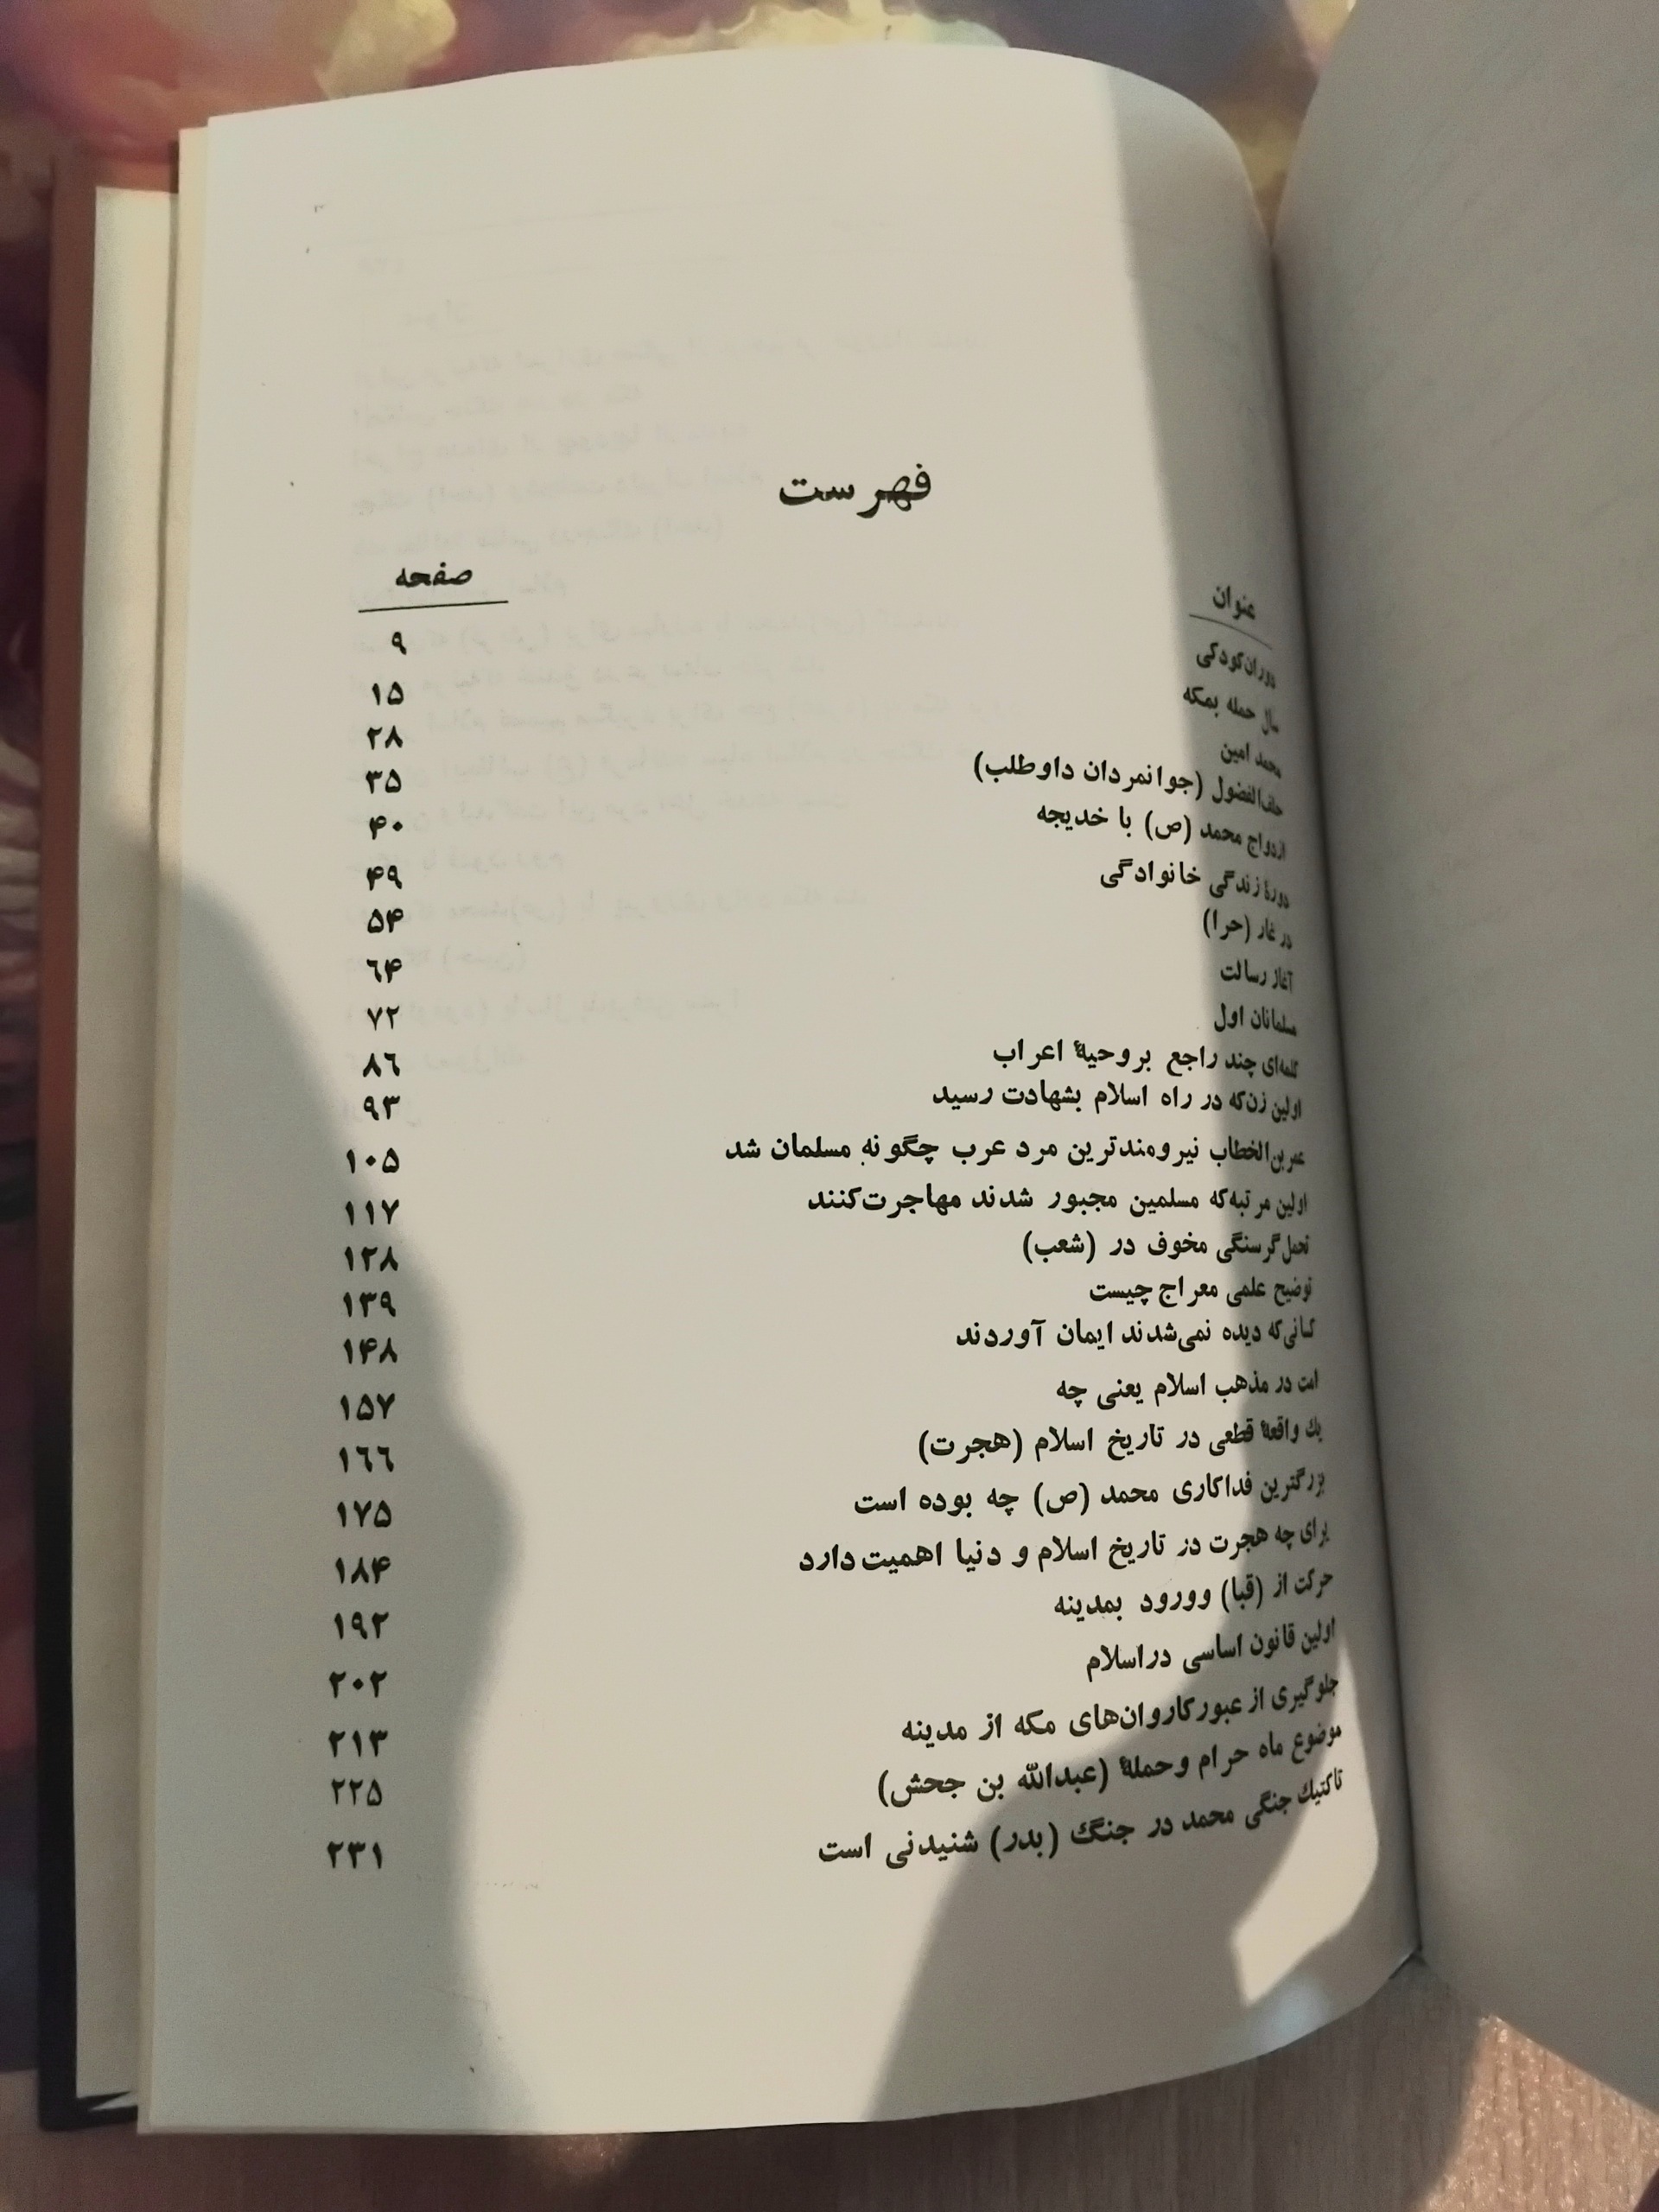 فهرست
عنوان صفحه
دوران کودکی ۹
سال حمله بمکه ۱۵
محمد امین ۲۸
حلف‌الفضول (جوانمردان داوطلب) ۳۵
ازدواج محمد (ص) با خدیجه ۴۰
دورهٔ زندگی خانوادگی ۴۹
در غار (حرا) ۵۴
آغاز رسالت ۶۴
مسلمانان اول ۷۲
کلمه‌ای چند راجع بروحیهٔ اعراب ۸۶
اولین زن‌که در راه اسلام بشهادت رسید ۹۳
عمربن‌الخطاب نیرومندترین مرد عرب چگونه مسلمان شد ۱۰۵
اولین مرتبه‌که مسلمین مجبور شدند مهاجرت‌کنند ۱۱۷
تحمل گرسنگی مخوف در (شعب) ۱۲۸
توضیح علمی معراج چیست ۱۳۹
کسانی‌که دیده نمی‌شدند ایمان آوردند ۱۴۸
امت در مذهب اسلام یعنی چه ۱۵۷
یك واقعهٔ قطعی در تاریخ اسلام (هجرت) ۱۶۶
بزرگترین فداکاری محمد (ص) چه بوده است ۱۷۵
برای چه هجرت در تاریخ اسلام و دنیا اهمیت دارد ۱۸۴
حرکت از (قبا) وورود بمدینه ۱۹۲
اولین قانون اساسی دراسلام ۲۰۲
جلوگیری از عبورکاروان‌های مکه از مدینه ۲۱۳
موضوع ماه حرام وحملهٔ (عبدالله بن جحش) ۲۲۵
تاکتیك جنگی محمد در جنگ (بدر) شنیدنی است ۲۳۱